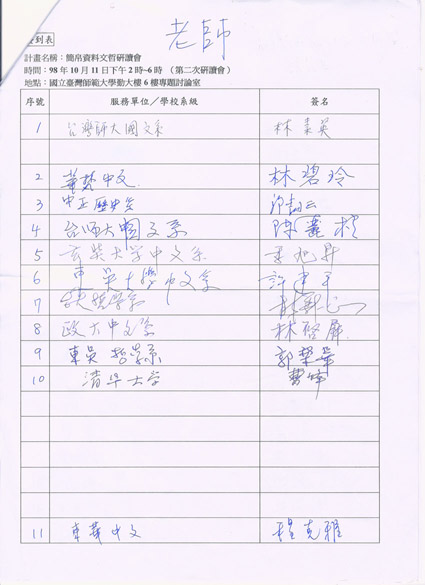 老師
簽到表
計畫名稱：簡帛資料文哲研讀會
時間：98 年 10 月 11 日下午 2 時~6 時 （第二次研讀會）
地點：國立臺灣師範大學勤大樓 6 樓專題討論室
序號 服務單位／學校系級 簽名
1 台灣師大國文系 林素英
2 華梵中文 林碧玲
3 中正歷史系
4 台师大國文系 陳麗桂
5 玄奘大学中文系
6 東吴大學中文系
7
8 政大中文系 林啓屏
9 東吳哲學系 郭梨華
10 清华大学 曹峰
11 東華中文 程克雅